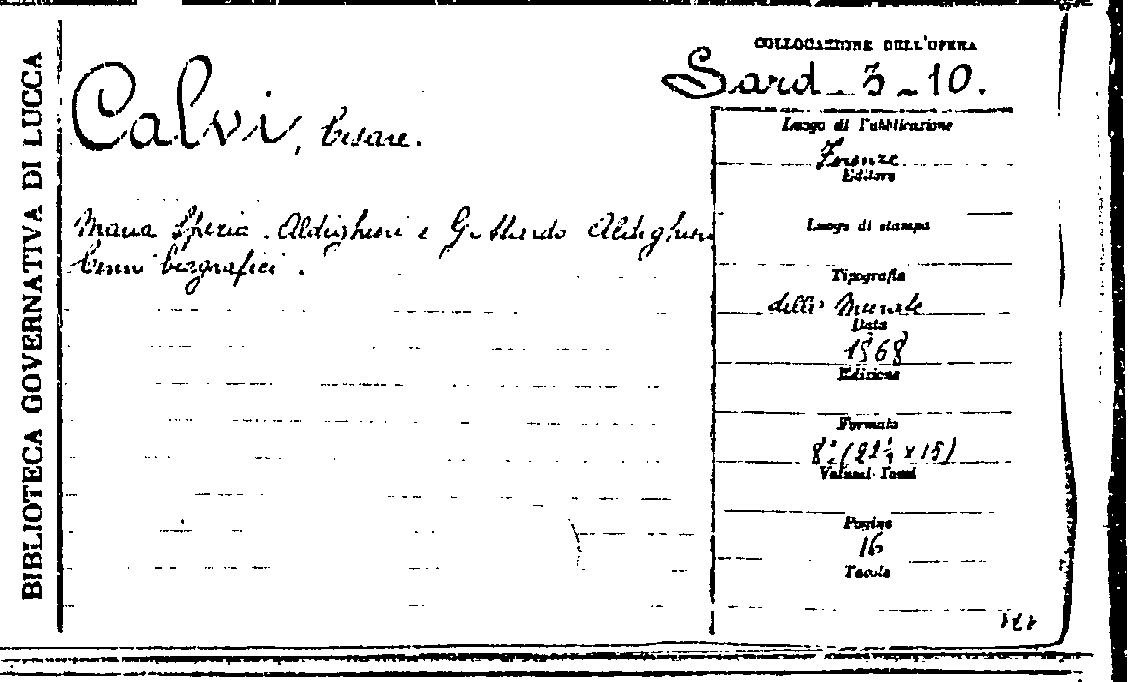 BIBLIOTECA GOVERNATIVA DI LUCCA
Calvi, Cesare.
Maria Spezia-Aldighieri e Gottardo Aldighieri
Cenni biografici.
COLLOCAZIONE DELL'OPERA
Sard - 3 - 10.
Luogo di Pubblicazione
Firenze
Editore
Luogo di stampa
Tipografia
delle Murate
Data
1868
Edizione
Formato
8° (22½ x 15)
Volumi-Tomi
Pagine
16
Tavole